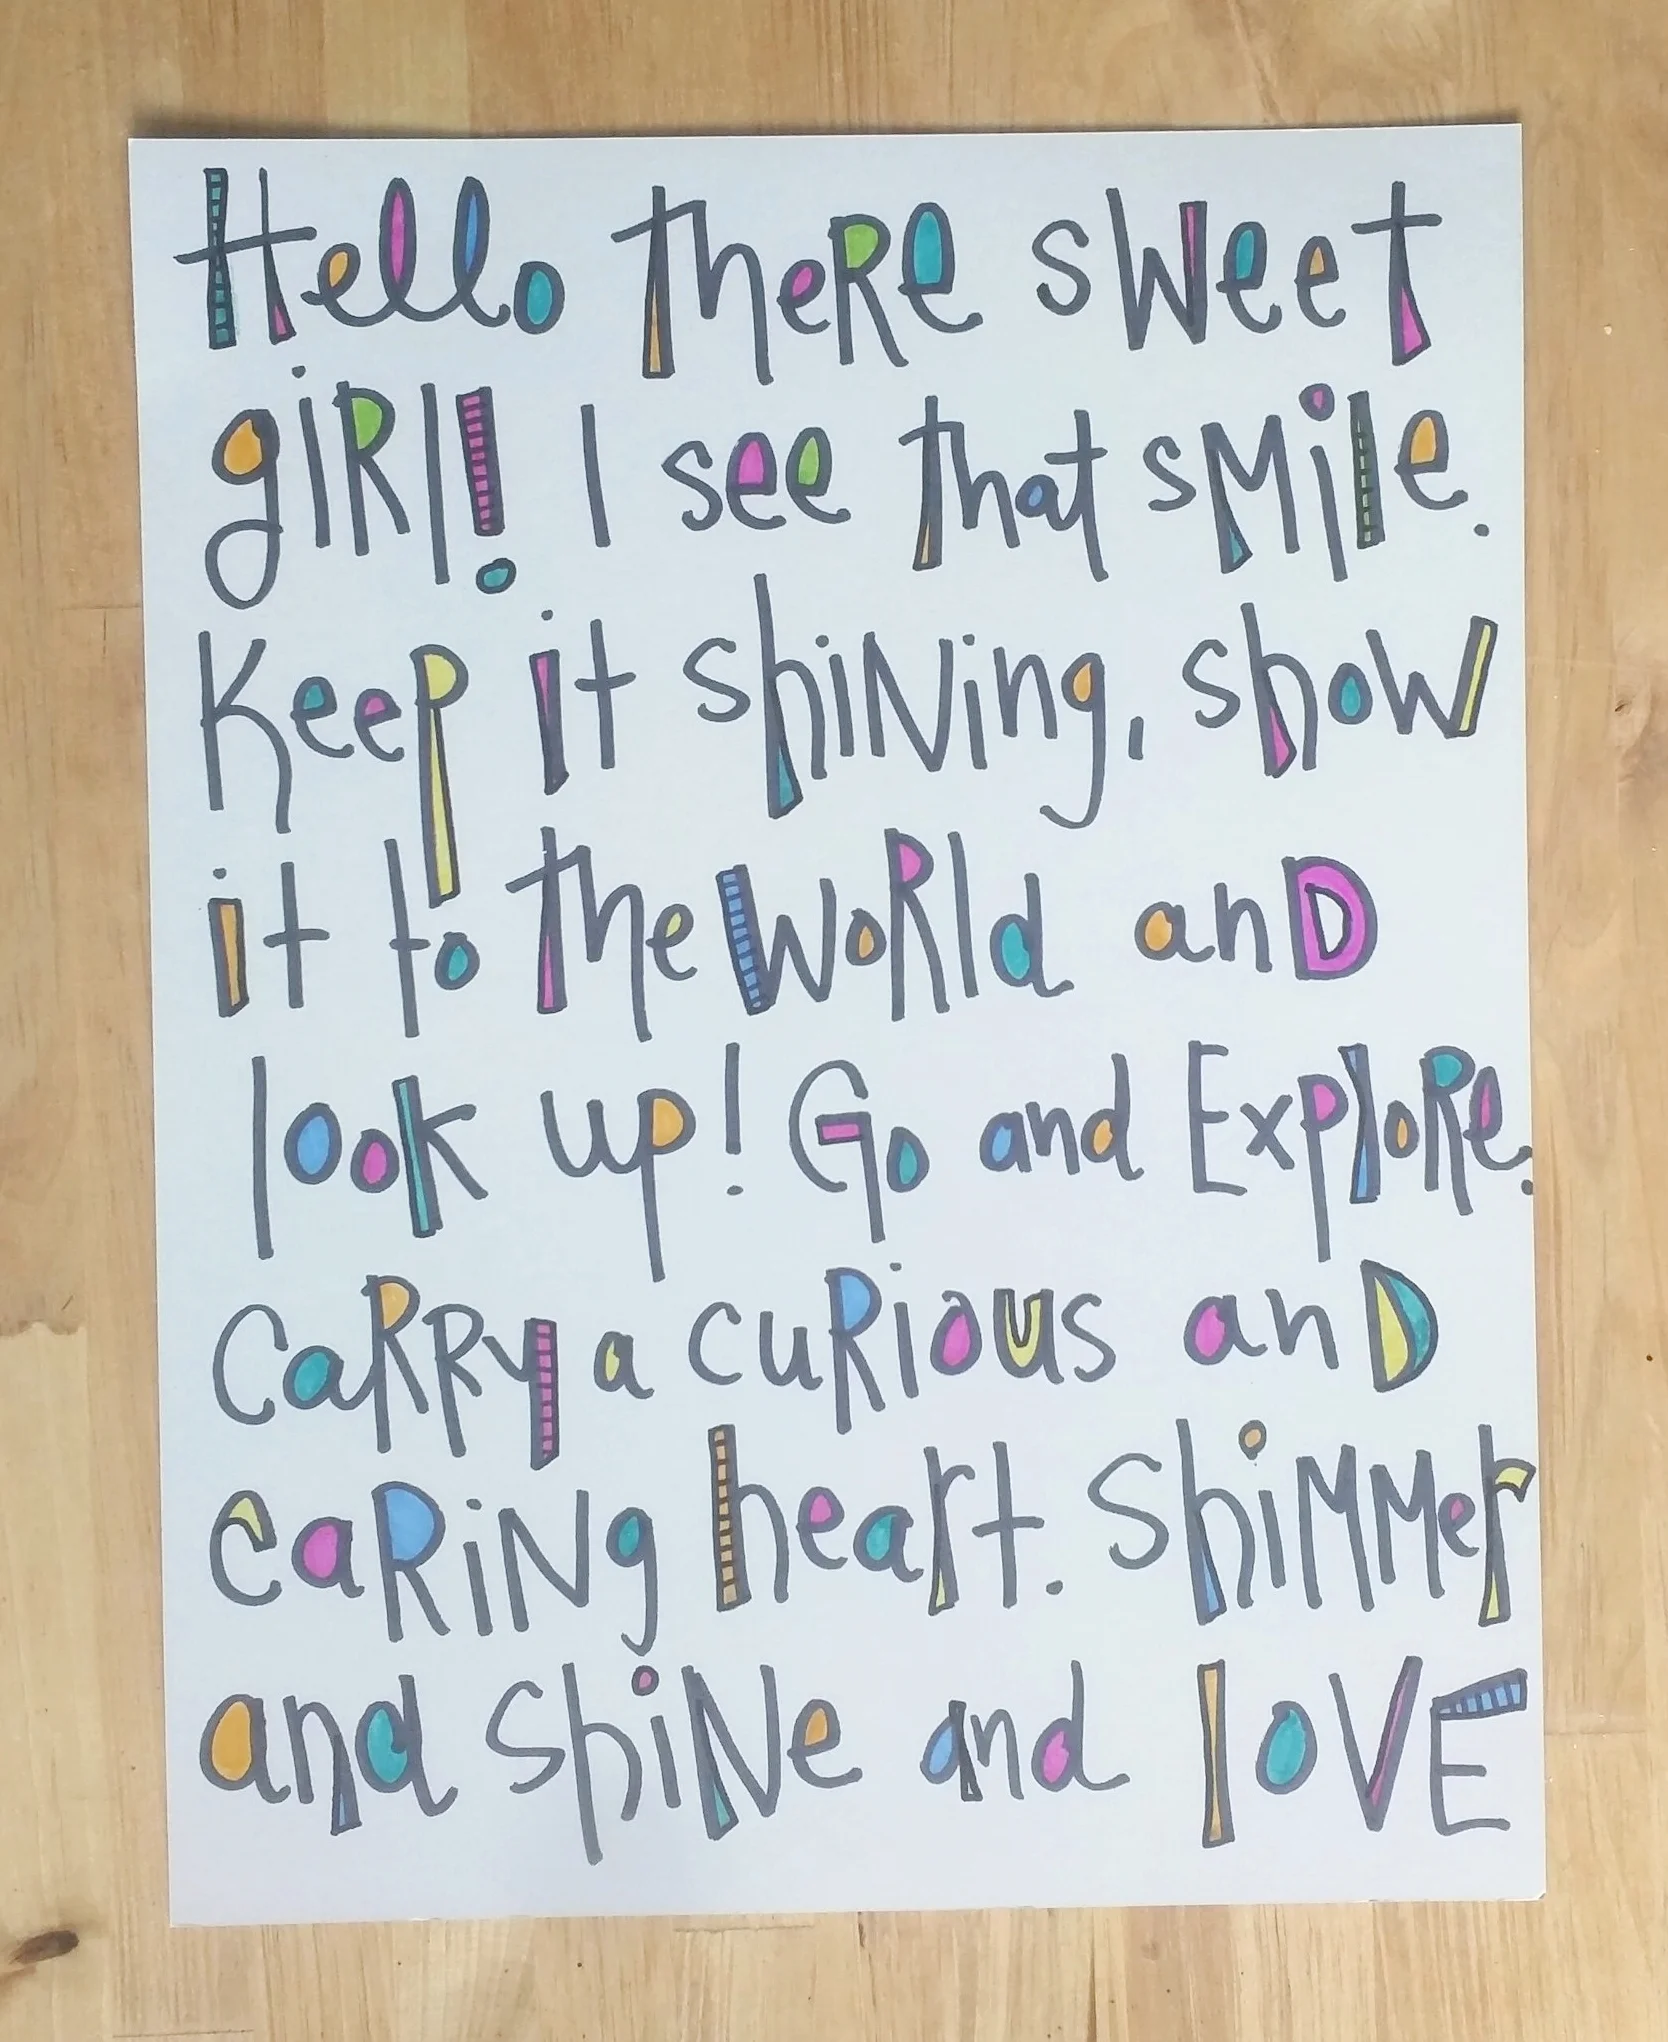 Hello theRe sweet
giRl! I see that sMile.
Keep it shiNing, show
it to the woRld anD
look up! Go and ExploRe.
CaRRy a cuRious anD
caRiNg heart. ShiMMer
and shiNe and loVE